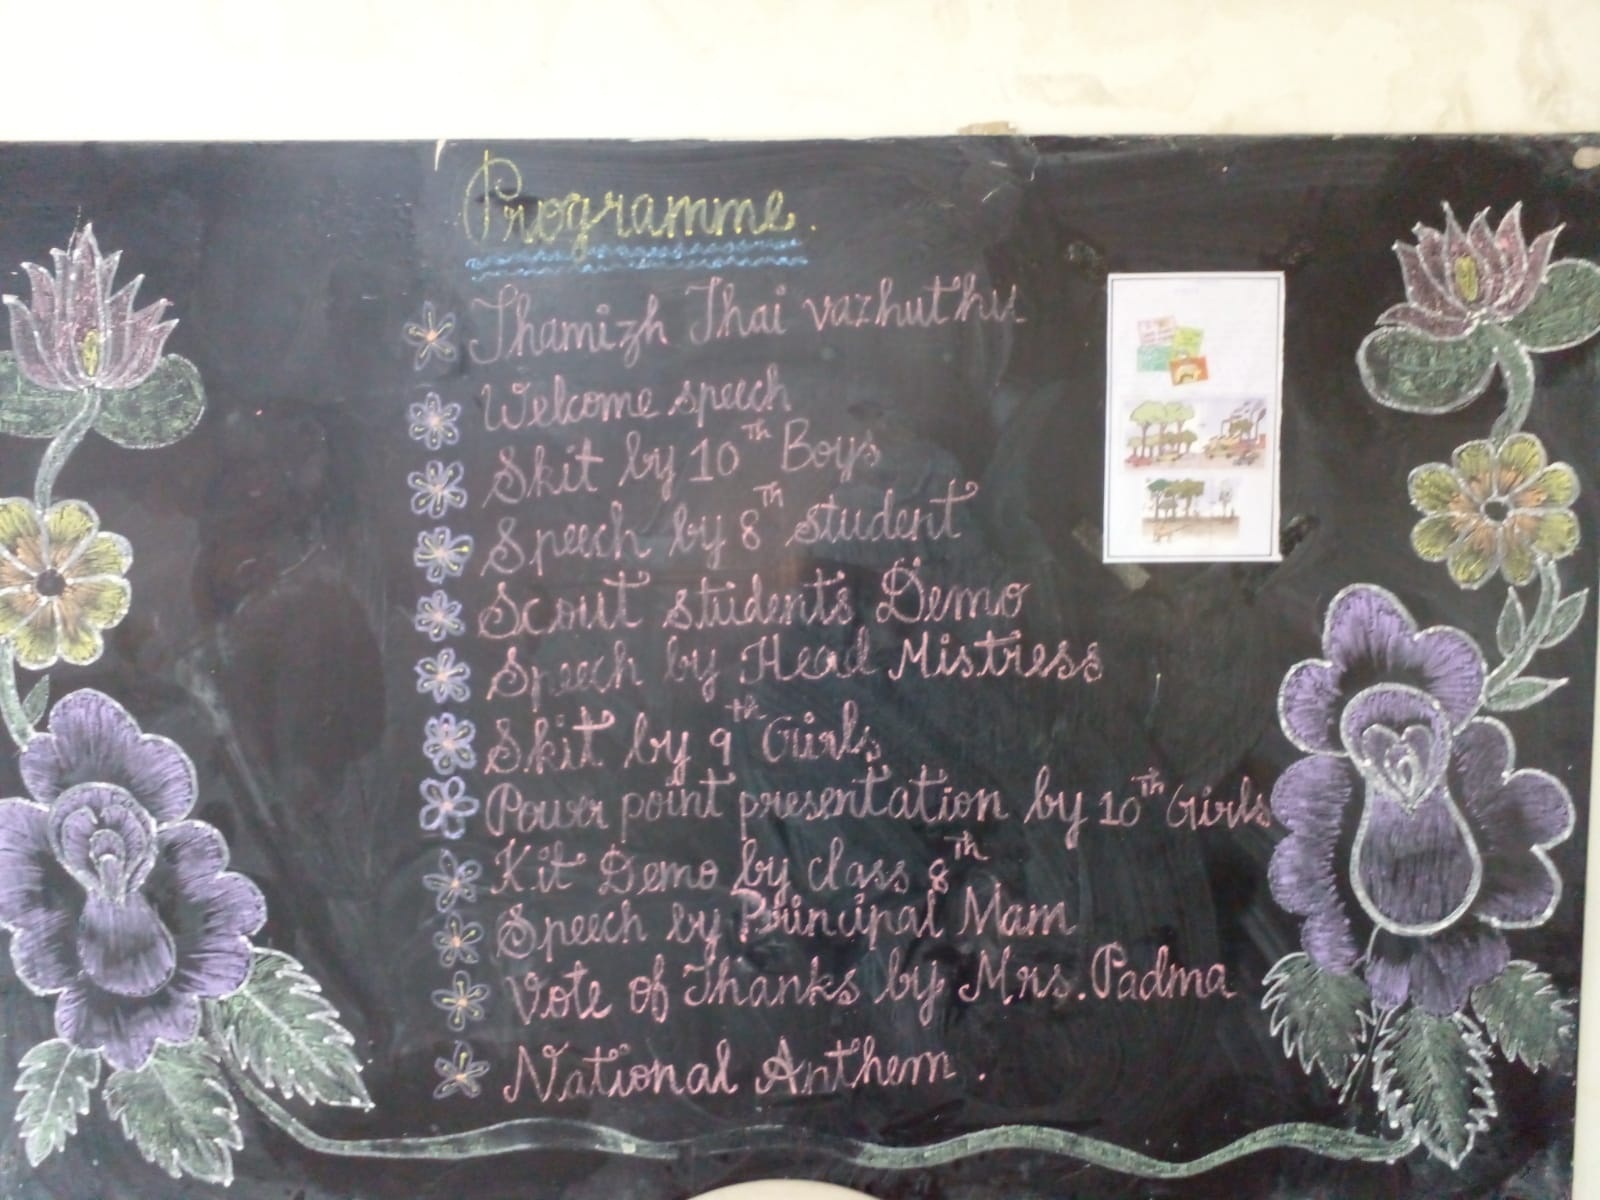 Programme.
Thamizh Thai vazhuthu
Welcome speech
Skit by 10th Boys
Speech by 8th student
Scout students Demo
Speech by Head Mistress
Skit by 9th Girls
Power point presentation by 10th Girls
Kit Demo by class 8th
Speech by Principal Mam
Vote of Thanks by Mrs. Padma
National Anthem.